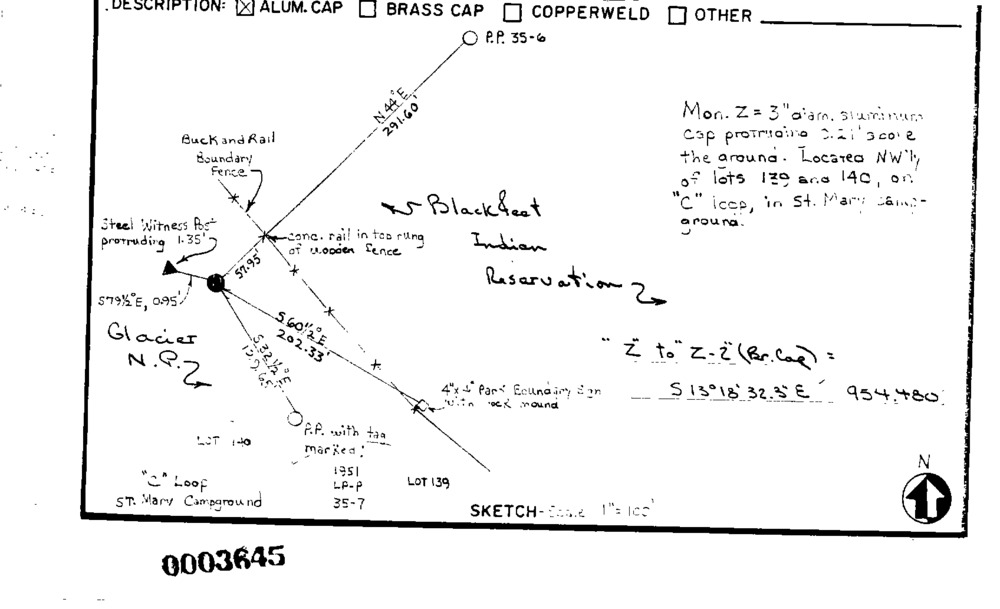 DESCRIPTION: ☒ ALUM. CAP ☐ BRASS CAP ☐ COPPERWELD ☐ OTHER
P.P. 35-6
N 44° E
291.60'
Mon. Z = 3" diam. aluminum
cap protruding 0.21' above
the ground. Located NW'ly
of lots 139 and 140, on
"C" loop, in St. Mary camp-
ground.
Buck and Rail
Boundary
Fence
Blackfeet
Indian
Reservation
Steel Witness Post
protruding 1.35'
conc. rail in top rung
of wooden fence
57.95'
S79½°E, 0.95'
Glacier
N.P.
S.60½°E
202.33'
S.32½°E
"Z" to "Z-2" (Br. Cap) =
S 13° 18' 32.3" E 954.480'
4"x4" Park Boundary Sign
with rock mound
P.P. with tag
marked:
1951
LP-P
35-7
LOT 140
LOT 139
"C" Loop
ST. Mary Campground
SKETCH- Scale 1"=100'
N
0003645